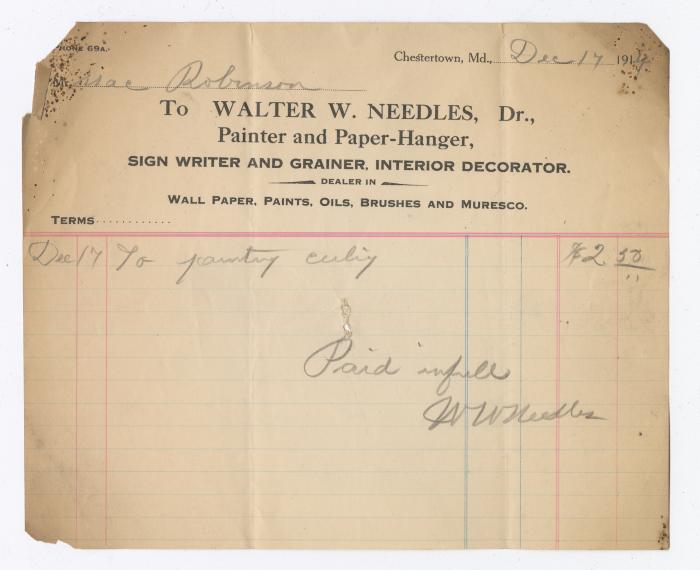 PHONE 69A.
Chestertown, Md., Dec 17 191
Mr. Mac Robinson
To WALTER W. NEEDLES, Dr.,
Painter and Paper-Hanger,
SIGN WRITER AND GRAINER, INTERIOR DECORATOR.
DEALER IN
WALL PAPER, PAINTS, OILS, BRUSHES AND MURESCO.
TERMS.............
Dec 17 To $2 50
Paid in full
W W Needles